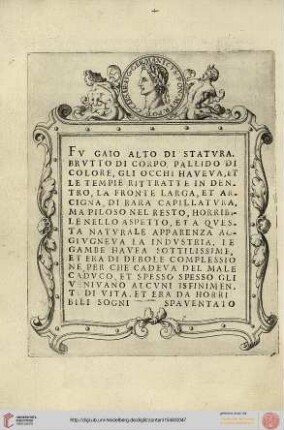 FV GAIO ALTO DI STATVRA.
BRVTTO DI CORPO, PALLIDO DI
COLORE, GLI OCCHI HAVEVA, ET
LE TEMPIE RITTRATTE IN DEN-
TRO, LA FRONTE LARGA, ET AR,
CIGNA, DI RARA CAPILLATVRA,
MA PILOSO NEL RESTO, HORRIBI-
LE NELLO ASPETTO, ET A QVES-
TA NATVRALE APPARENZA AG-
GIVGNEVA LA INDVSTRIA. LE
GAMBE HAVEA SOTTILISSIME,
ET ERA DI DEBOLE COMPLESSIO
NE, PER CHE CADEVA DEL MALE
CADVCO, ET SPESSO SPESSO GLI
VENIVANO ALCVNI ISFINIMEN-
TI DI VITA. ET ERA DA HORRI
BILI SOGNI SPAVENTATO